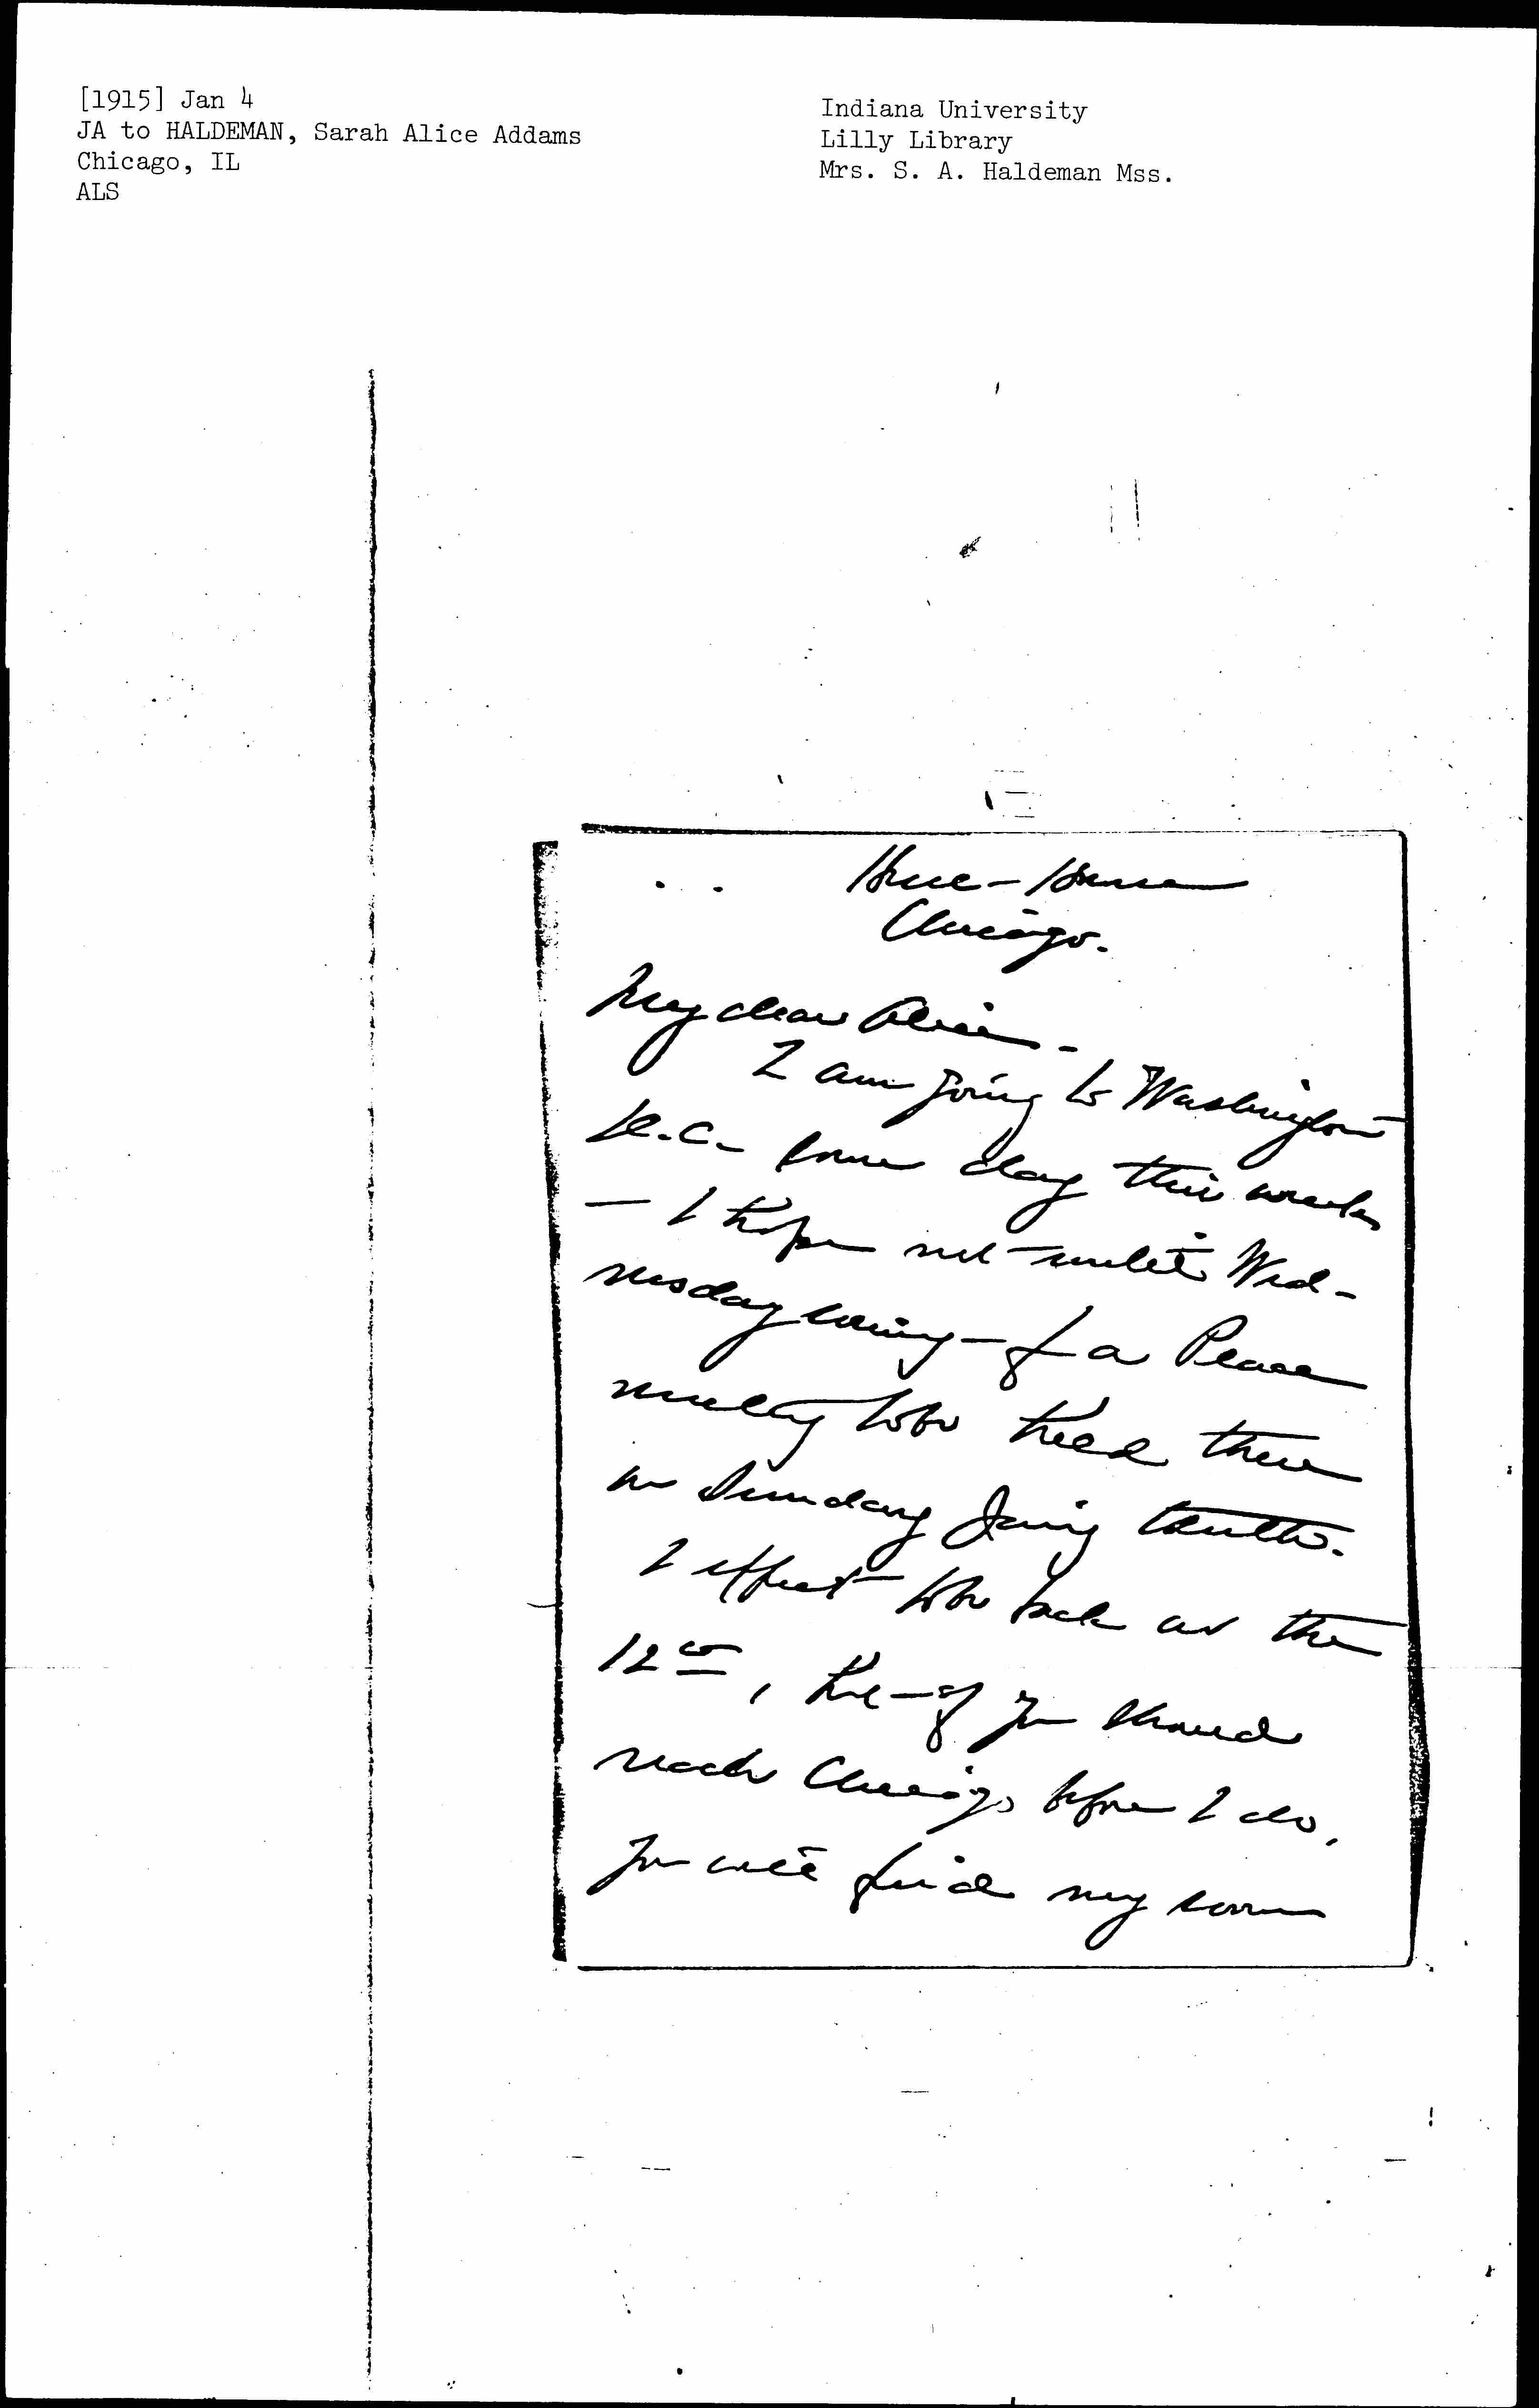 [1915] Jan 4
JA to HALDEMAN, Sarah Alice Addams
Chicago, IL
ALS
Indiana University
Lilly Library
Mrs. S. A. Haldeman Mss.
Hull-House
Chicago.
My dear Alice -
I am going to Washington
D.C. some day this week
- I hope not until Wed-
nesday evening - for a Peace
meeting to be held there
on Sunday Jan'y tenth.
I expect to be back on the
12th, but if you should
reach Chicago before I do,
you will find my room